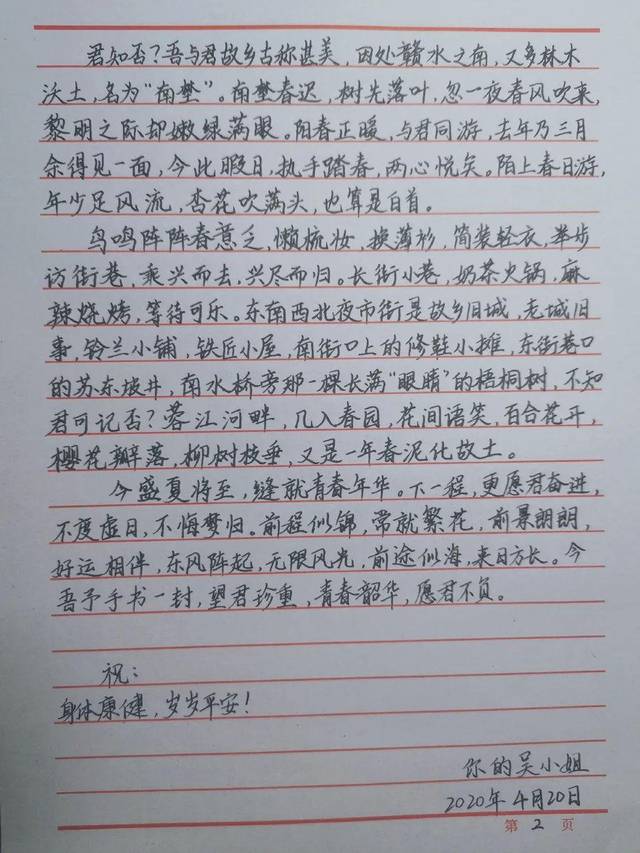 君知否？吾与君故乡古称甚美，因处赣水之南，又多林木
沃土，名为“南埜”。南埜春迟，树先落叶，忽一夜春风吹来，
黎明之际却嫩绿满眼。阳春正暖，与君同游，去年乃三月
余得见一面，今此暇日，执手踏春，两心悦矣。陌上春日游，
年少足风流，杏花吹满头，也算是白首。
鸟鸣阵阵春意乏，懒梳妆，换薄衫，简装轻衣，举步
访街巷，乘兴而去，兴尽而归。长街小巷，奶茶火锅，麻
辣烧烤，等待可乐。东南西北夜市街是故乡旧城，老城旧
事，铃兰小铺，铁匠小屋，南街口上的修鞋小摊，东街巷口
的苏东坡井，南水桥旁那一棵长满“眼睛”的梧桐树，不知
君可记否？蓉江河畔，几入春园，花间语笑，百合花开，
樱花瓣落，柳树枝垂，又是一年春泥化故土。
今盛夏将至，缝就青春年华。下一程，更愿君奋进，
不度虚日，不悔梦归。前程似锦，常就繁花，前景朗朗，
好运相伴，东风阵起，无限风光，前途似海，来日方长。今
吾予手书一封，望君珍重，青春韶华，愿君不负。
祝：
身体康健，岁岁平安！
你的吴小姐
2020年4月20日
第 2 页